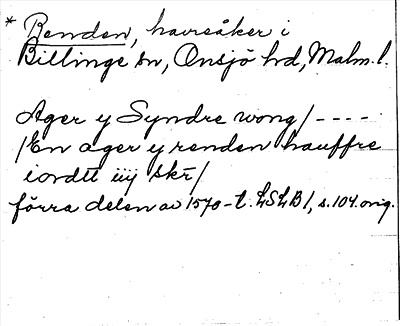 * Renden, havreåker i
Billinge sn, Onsjö hd, Malm. l.
Ager y Syndre wong/----
/En ager y renden hauffre
iordtt iiij skr/
förra delen av 1570-t. LSLB 1, s.104.orig.